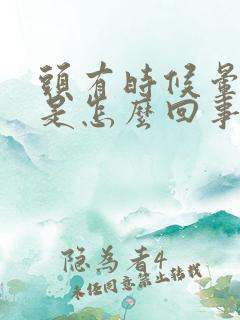 頭有時候暈
是怎麼回事
隐為者4
未任同意禁止轉載